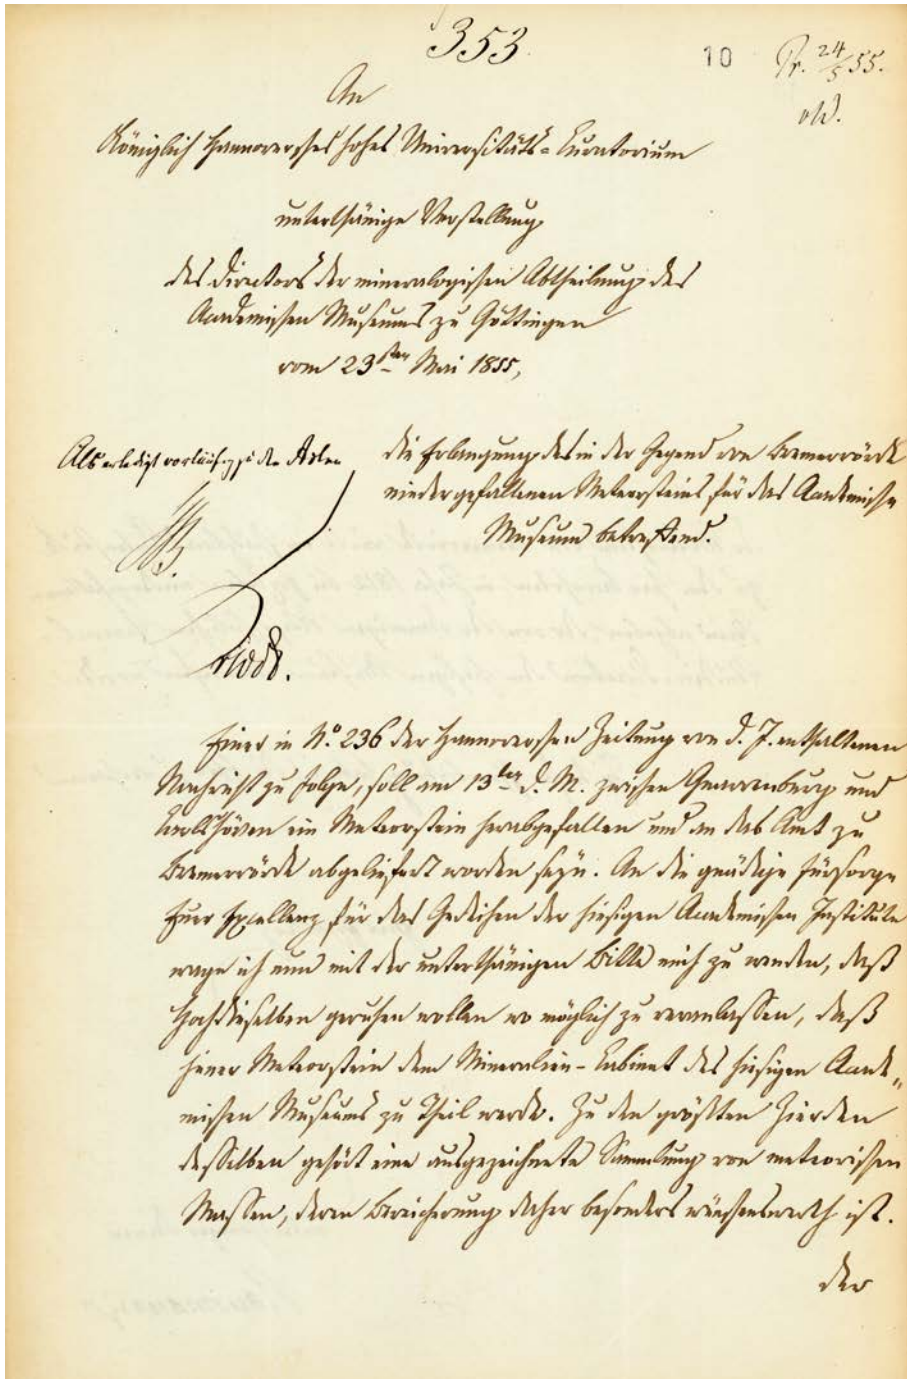 353.
10
Pr. 24/5 55.
An
Königlich Hannoversches hohes Universitäts-Curatorium
unterthänige Vorstellung
des Directors der mineralogischen Abtheilung des
Academischen Museums zu Göttingen
vom 23sten Mai 1855,
Als erledigt vorläufig zu den Acten
die Erlangung des in der Gegend von Bremervörde
niedergefallenen Meteorsteins für das Academische
Museum betreffend.
Einer in No. 236 der Hannoverschen Zeitung von d. J. enthaltenen
Nachricht zu Folge, soll am 13ten d. M. zwischen Gnarrenburg und
Karlshöven ein Meteorstein herabgefallen und an das Amt zu
Bremervörde abgeliefert worden seyn. An die gnädige Fürsorge
Euer Excellenz für das Gedeihen der hiesigen Academischen Institute
wage ich nun mit der unterthänigen Bitte mich zu wenden, daß
Hochdieselben geruhen wollen wo möglich zu veranlassen, daß
jener Meteorstein dem Mineralien-Cabinet des hiesigen Acade„
mischen Museums zu Theil werde. Zu den größten Zierden
desselben gehört eine ausgezeichnete Sammlung von meteorischen
Massen, deren Bereicherung daher besonders wünschenswerth ist.
Der